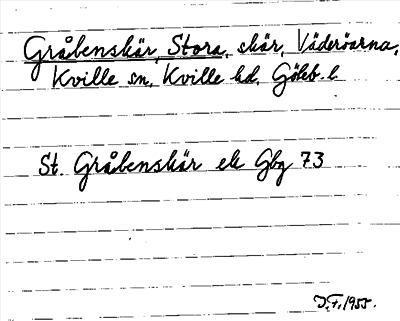 Gråbenskär, Stora, skär, Väderöarna,
Kville sn, Kville hd, Göteb. l
St. Gråbenskär ek Gbg 73
J.F. 1955.